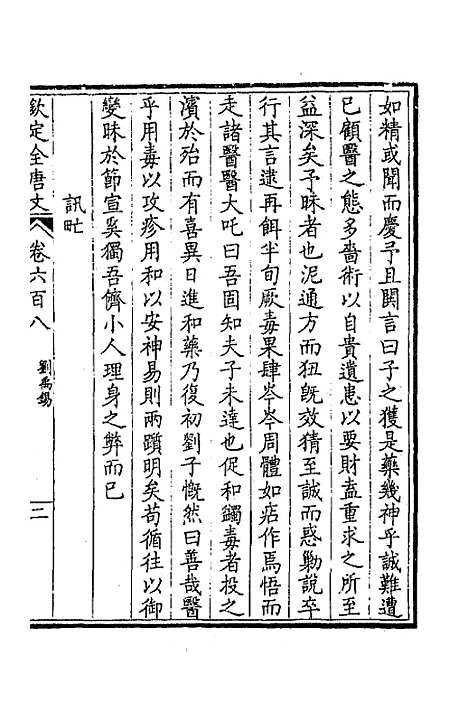 如精或聞而慶予且䦕言曰子之獲是藥幾神乎誠難遭
已顧醫之態多嗇術以自貴遺患以要財盍重求之所至
益深矣予昧者也泥通方而狃旣效猜至誠而惑勦說卒
行其言逮再餌半旬厥毒果肆岑岑周體如痁作焉悟而
走諸醫醫大吒曰吾固知夫子未達也促和蠲毒者投之
濱於殆而有喜異日進和藥乃復初劉子慨然曰善哉醫
乎用毒以攻疹用和以安神易則兩躓明矣苟循往以御
變昧於節宣奚獨吾儕小人理身之弊而已
訊甿
欽定全唐文
卷六百八
劉禹錫
二